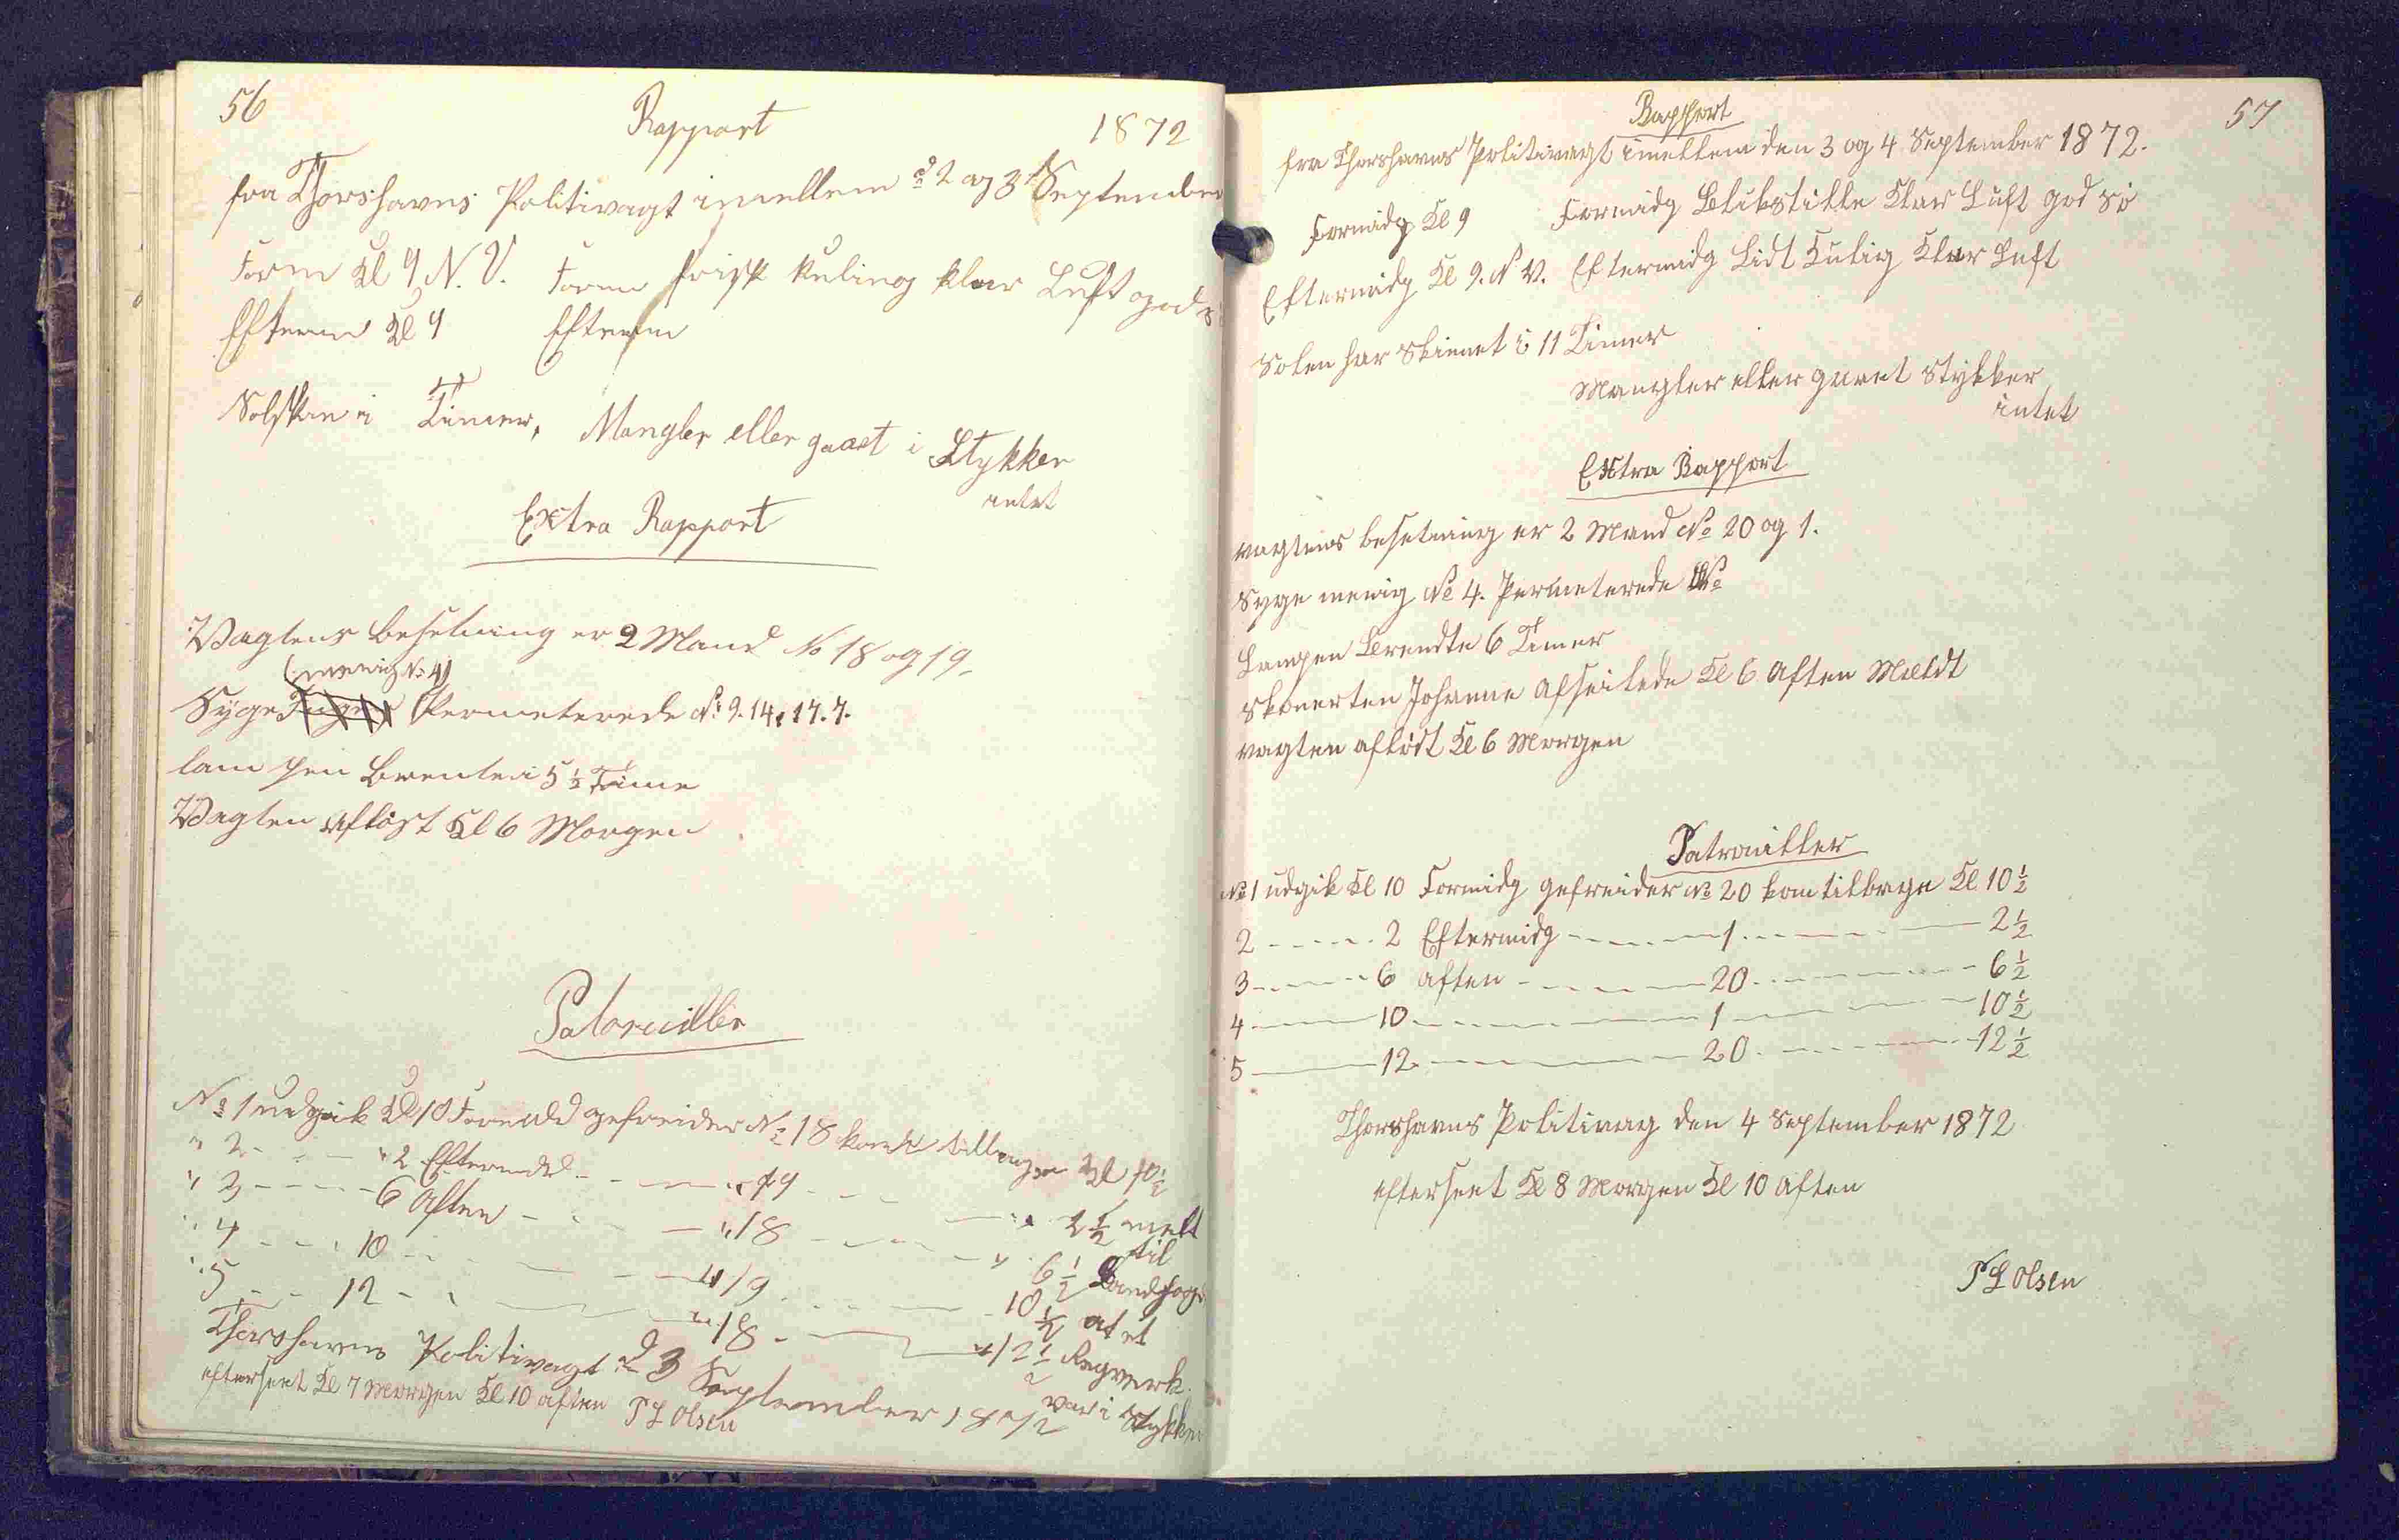 56
Rapport
1872
fra Thorshavns Politivagt imellem d 2 og 3 September
Form Kl 9 N. V. Form frisk kuling klar Luft god s
Efterm Kl 9 Efterm
Solskin i Timer, Mangler eller gaaet i Stykker
intet
Extra Rapport
Vagtens besetning er 2 Mand No 18 og 19.
(menig No 4)
Syge Permeterede No 9. 14, 17. 7.
lampen Brente i 5 1/2 Time
Vagten afløst Kl 6 Morgen
Patrouiller
No 1 udgik Kl 10 Formd gefreider No 18 kom tilbage Kl 10 1/2
" 2 - - - " 2 Eftermd - - - " 19 - - - " 2 1/2 melt
til
" 3 - - - 6 Aften - - - " 18 - - - " 6 1/2 Landfoged
" 4 - - - 10 - - - " 19 - - - 10 1/2 at et
" 5 - - 12 - - - " 18 - - - " 12 1/2 Regverk
var i Stykker
Thorshavns Politivagt d 3 September 1872
efterseet Kl 7 Morgen Kl 10 aften P L Olsen
57
Rapport
fra Thorshavns Politivagt imellem den 3 og 4 September 1872.
Formidg Kl 9 Formidg Blikstille Klar Luft god sø
Eftermidg Kl 9. N V. Eftermidg Lidt Kulig Klar Luft
Solen har Skinnet i 11 Timer
Mangler eller gaaet Stykker
intet
Extra Rapport
vagtens besetning er 2 Mand No 20 og 1.
Syge menig No 4. Permeterede No
Lampen Brendte 6 Timer
Skonerten Johanne afseilede Kl 6 Aften Meldt
vagten afløst Kl 6 Morgen
Patrouiller
No 1 udgik Kl 10 Formidg gefreider No 20 kom tilbage Kl 10 1/2
2 - - - 2 Eftermidg - - - 1 - - - 2 1/2
3 - - - 6 aften - - - 20 - - - 6 1/2
4 - - - 10 - - - 1 - - - 10 1/2
5 - - - 12 - - - 20 - - - 12 1/2
Thorshavns Politivag den 4 September 1872
efterseet Kl 8 Morgen Kl 10 Aften
P L Olsen